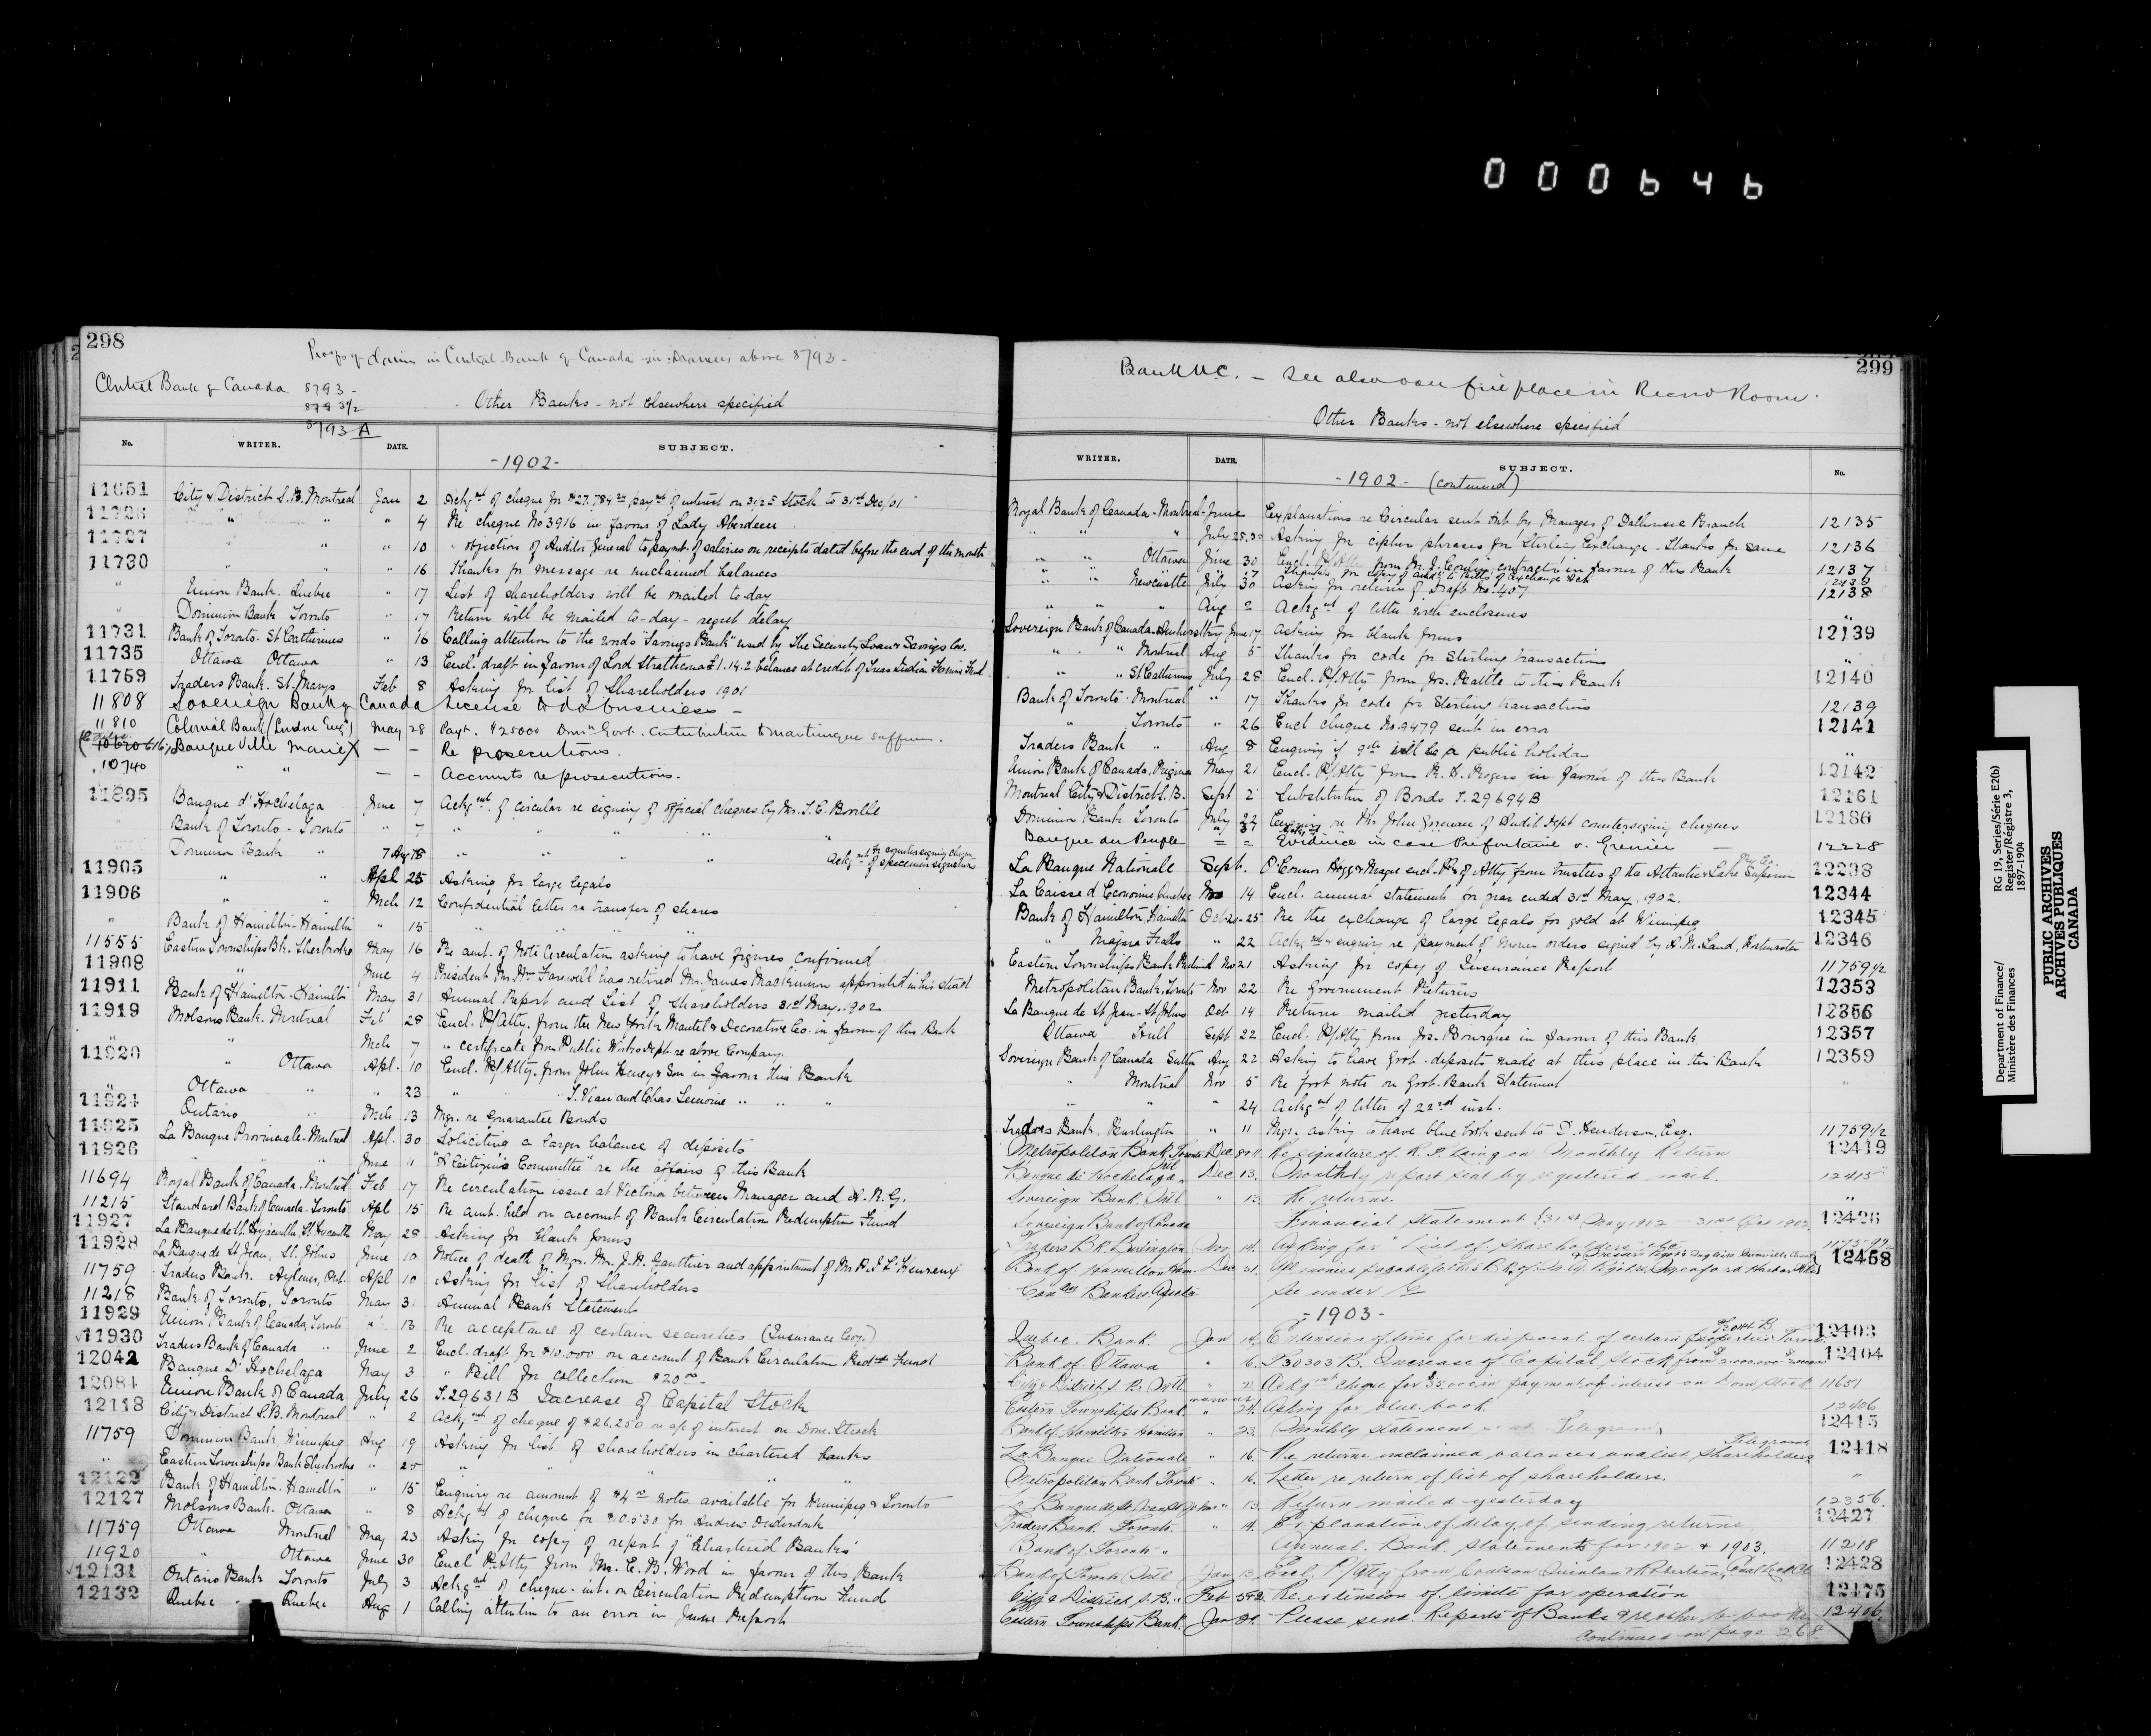 000646
298
Proofs of claim in Central Bank of Canada in drawers above 8793 -
Central Bank of Canada 8793 -
8793½
8793 A
Other Banks - not elsewhere specified
No. WRITER. DATE. SUBJECT.
- 1902 -
11651 City & District S.B. Montreal Jan 2 Ackgmt of cheque for paymt of interest on Stock to 31st Dec/01
11726 " " " 4 Re cheque No 3916 in favour of Lady Aberdeen
11727 " " " 10 " objection of Auditor General to paymt. of salaries on receipts dated before the end of the month
11730 " " " 16 Thanks for message re unclaimed balances
" Union Bank. Quebec " 17 List of shareholders will be mailed to day
" Dominion Bank Toronto " 17 Return will be mailed to-day - regret delay
11731 Bank of Toronto. St Catharines " 16 Calling attention to the words "Savings Bank" used by The Security Loan & Savings Co.
11735 Ottawa Ottawa " 13 Encl. draft in favour of Lord Strathcona £1.14.2 balance at credit of Indian Famine Fund
11759 Traders Bank. St. Marys Feb 8 Asking for list of Shareholders 1901
11808 Sovereign Bank of Canada License to do business -
11810 Colonial Bank (London Eng) May 28 Payt. $25000 Domn Govt. contribution to Martinique sufferers.
10620 Banque Ville Marie X — — Re prosecutions.
10740 " " — — Accounts re prosecutions.
11895 Banque d'Hochelaga June 7 Ackgmt. of circular re signing of official cheques by Mr. T. C. Boville
Bank of Toronto - Toronto " 7 " " " " "
Dominion Bank " " " " " Ackgmt of specimen signature
11905 " " Apl 25 Asking for large legals
11906 " " Mch 12 Confidential letter re transfer of shares
" Bank of Hamilton - Hamilton " 15 " " " "
11555 Eastern Townships Bk. Sherbrooke May 16 Re amt. of Note Circulation asking to have figures confirmed
11908 " June 4 President Mr. Wm Farwell has retired Mr. James Mackinnon appointed in his stead
11911 Bank of Hamilton - Hamilton May 31 Annual Report and List of Shareholders 31st May, 1902
11919 Molsons Bank. Montreal Feb 28 Encl. P/Atty. from the New York Mantel & Decorative Co. in favour of this Bank
" " Mch 7 " certificate from Public Works Dept. re above Company.
11920 " Ottawa Apl. 10 Encl. P/Atty. from John Heney & Son in favour this Bank
" Ottawa " " 23 " " T. Viau and Chas Lemoine " " "
11924 Ontario " Mch 13 Mgr. re Guarantee Bonds
11925 La Banque Provinciale - Montreal Apl. 30 Soliciting a larger balance of deposits
11926 " " " June 11 "A Citizen's Committee" re the affairs of this Bank
11694 Royal Bank of Canada. Montreal Feb 17 Re circulation issue at Victoria between Manager and A.R.G.
11215 Standard Bank of Canada. Toronto Apl 15 Re amt. held on account of Bank Circulation Redemption Fund
11927 La Banque de St. Hyacinthe, St. Hyacinthe May 28 Asking for blank forms
11928 La Banque de St Jean, St. Johns June 10 Notice of death of Mgr. Mr. J. N. Gauthier and appointment of Mr
11759 Traders Bank. Aylmer, Ont. Apl 10 Asking for list of Shareholders
11218 Bank of Toronto, Toronto May 31 Annual Bank Statement
11929 Union Bank of Canada, Toronto " 13 Re acceptance of certain securities (Insurance Coys.)
11930 Traders Bank of Canada " June 2 Encl. draft for $10.000 on account of Bank Circulation Redt Fund
12042 Banque D'Hochelaga May 3 " Bill for collection $20.00
12081 Union Bank of Canada July 26 T.29631B Increase of Capital Stock
12118 City & District S.B. Montreal " 2 Ackgmt of cheque of $26.250 in a/c of interest on Dom. Stock
11759 Dominion Bank Winnipeg Aug 19 Asking for list of shareholders in chartered banks
" Eastern Townships Bank Sherbrooke " 25 " " " " "
12122 Bank of Hamilton. Hamilton " 15 Enquiry re amount of $4.00 notes available for Winnipeg & Toronto
12127 Molsons Bank. Ottawa " 8 Ackgmt of cheque for for Andrew Onderdonk
11759 Ottawa Montreal May 23 Asking for copy of report of "Chartered Banks"
11920 " Ottawa June 30 Encl P/Atty from Mr. E. B. Wood in favour of this Bank
12131 Ontario Bank Toronto July 3 Ackgmt of cheque - int. on Circulation Redemption Fund
12132 Quebec " Quebec Aug 1 Calling attention to an error in June Report
299
Bank U.C. - See also over fire place in Record Room.
Other Banks - not elsewhere specified
WRITER. DATE. SUBJECT. No.
- 1902 - (continued)
Royal Bank of Canada - Montreal June Explanations re Circular sent out by Manager of Dalhousie Branch 12135
" " " July 25.30 Asking for cipher phrases for Sterling Exchange - Thanks for same 12136
" " Ottawa June 30 Encl. P/Atty from Mr. J. contractor in favour of this Bank 12137
" " " " 17 Thanks for copy of amdt to Bills of Exchange Act
" " Newcastle July 30 Asking for return of Draft No. 407 12138
" " " Aug 2 Ackgmt of letter with enclosures "
Sovereign Bank of Canada - Amherstburg June 17 Asking for blank forms 12139
" " Montreal Aug 5 Thanks for code for Sterling transactions "
" " St Catharines July 28 Encl. P/Atty from Jos. Battle to this Bank 12140
Bank of Toronto - Montreal " 17 Thanks for code for Sterling transactions 12139
" Toronto " 26 Encl cheque No. 9479 sent in error 12141
Traders Bank " Aug 8 Enquiry if 9th will be a public holiday "
Union Bank of Canada, Regina May 21 Encl. P/Atty from R. Rogers in favour of this Bank 12142
Montreal City & District S.B. Sept 2 Substitution of Bonds T.29694B 12161
Dominion Bank Toronto July 22 Enquiry re Mr John Gorman of Audit Dept countersigning cheques 12186
Banque du Peuple — — Evidence in case Prefontaine v. Grenier — 12228
La Banque Nationale Sept. O'Connor Hogg & Magee encl. P/s of Atty from trustees of the Atlantic & Lake Superior Ry Co. 12238
La Caisse d'Economie Quebec 14 Encl. annual statements for year ended 31st May, 1902. 12344
Bank of Hamilton, Hamilton Oct 20-25 Re the exchange of large legals for gold at Winnipeg 12345
" Niagara Falls " 22 Ackgmt & enquiry re payment of money orders signed by Postmaster 12346
Eastern Townships Bank Nov 21 Asking for copy of Insurance Report 11759½
Metropolitan Bank, Toronto Nov 22 Re Government Returns 12353
La Banque de St Jean - St Johns Oct. 14 Return mailed yesterday 12356
Ottawa Hull Sept 22 Encl. P/Atty from Jos. Bourque in favour of this Bank 12357
Sovereign Bank of Canada Sutton Aug 22 Asking to have Govt. deposits made at this place in this Bank 12359
" Montreal Nov 5 Re foot note on Govt. Bank Statement "
" " " 24 Ackgmt of letter of 22nd inst.
Traders Bank. Burlington " 11 Mgr. asking to have blue book sent to D. Henderson, Esq. 11759½
Metropolitan Bank, Toronto Dec Re signature of on Monthly Return 12419
Banque de Hochelaga, Mtl Dec 13. Monthly report sent by registered mail. 12415
Sovereign Bank. Mtl " 12. Re returns. "
Sovereign Bank of Canada Financial statement 31st May 1902 - 31st Oct 1902 12426
Traders Bk. Burlington Nov 14. Asking for "List of Shareholders" etc.
Bank of Hamilton Dec 31. All monies payable to this Bk. 12458
Can. Bankers Assoctn See under
- 1903 -
Quebec. Bank. Jan 14. Extension of time for disposal of certain properties Toronto 12403
Bank of Ottawa " 16. T30303 B. Increase of Capital Stock from 12404
City & District S. B. Mtl " 2 Ackgmt cheque for in payment of interest on Dom. Stock. 11651
Eastern Townships Bank. " 24. Asking for blue book 12406
Bank of Hamilton Hamilton " 23 Monthly statement Telegram 12415
La Banque Nationale " 16. Re returns unclaimed balances and list Shareholders Telegrams 12418
Metropolitan Bank Toronto " 16. Letter re return of list of shareholders. "
La Banque de St Jean St Johns " 13. Return mailed yesterday 12356.
Traders Bank. Toronto. " Explanation of delay of sending returns 12427
Bank of Toronto " Annual. Bank. Statements for 1902 & 1903. 11218
Bank of Toronto Mtl Jan 13. Encl. P/Atty from Coulson 12428
City & District S.B. " Feb Re. extension of limits for operation 12475
Eastern Townships Bank. Jan Please send Reports of Banks 12406
Continued on page 268
Department of Finance/
Ministère des Finances
RG 19, Series/Série E2(b)
Register/Régistre 3,
1897-1904
PUBLIC ARCHIVES
ARCHIVES PUBLIQUES
CANADA